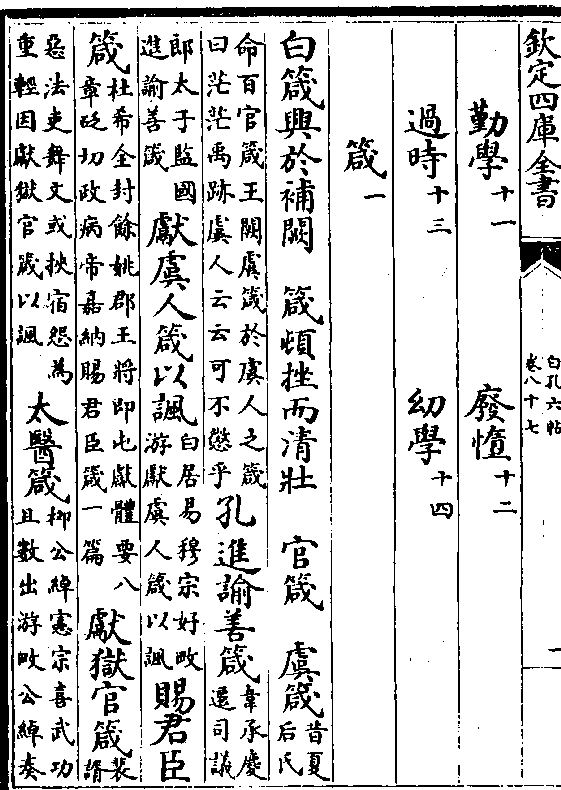 欽定四庫全書
白孔六帖
卷八十七
一
勤學十一 廢惰十二
過時十三 幼學十四
箴一
白箴興於補闕 箴頓挫而清壯 官箴 虞箴昔夏后氏
命百官箴王闕虞箴於虞人之箴曰茫茫禹跡虞人云云可不懲乎孔進諭善箴韋承慶遷司議
郎太子監國進諭善箴獻虞人箴以諷白居易穆宗好畋游獻虞人箴以諷賜君臣
箴杜希全封餘姚郡王將即屯獻體要八章砭切政病帝嘉納賜君臣箴一篇獻獄官箴裴諝
惡法吏舞文或挾宿怨為重輕因獻獄官箴以諷太醫箴柳公綽憲宗喜武功且數出游畋公綽奏